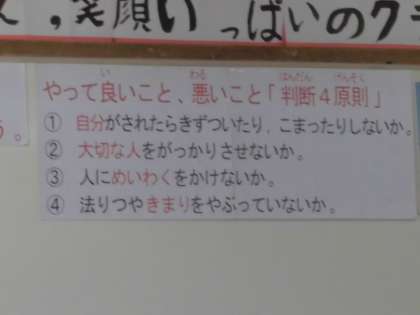 , 笑顔いっぱいのク
う。
やって良いこと、悪いこと「判断4原則」
① 自分がされたらきずついたり、こまったりしないか。
② 大切な人をがっかりさせないか。
③ 人にめいわくをかけないか。
④ 法りつやきまりをやぶっていないか。